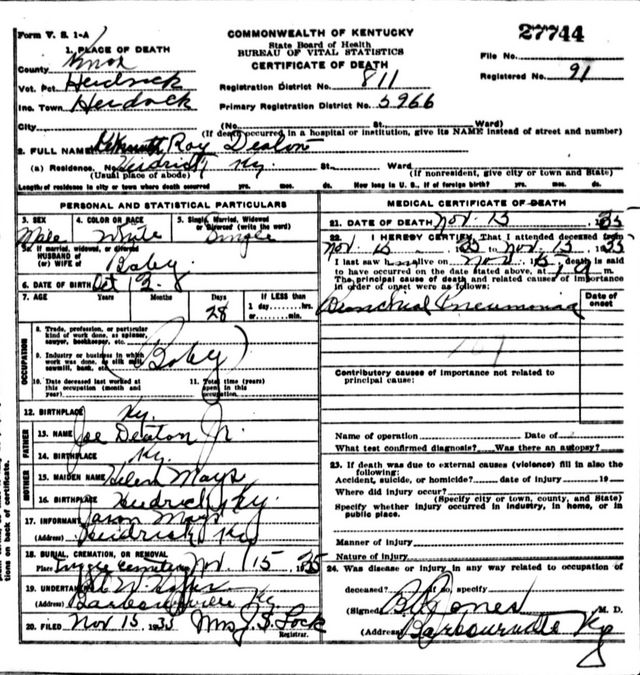 Form V. S. 1-A
COMMONWEALTH OF KENTUCKY
State Board of Health
BUREAU OF VITAL STATISTICS
CERTIFICATE OF DEATH
27744
File No.
Registered No. 91
1. PLACE OF DEATH
County Knox
Vot. Pct. Heidrick
Inc. Town Heidrick
Registration District No. 811
Primary Registration District No. 5966
City (No. St. Ward)
(If death occurred in a hospital or institution, give its NAME instead of street and number)
2. FULL NAME Kenneth Roy Deaton
(a) Residence. No. Heidrick Ky. St. Ward
(Usual place of abode) (If nonresident, give city or town and State)
Length of residence in city or town where death occurred yrs. mos. ds. How long in U. S., if of foreign birth? yrs. mos. ds.
PERSONAL AND STATISTICAL PARTICULARS
3. SEX 4. COLOR OR RACE 5. Single, Married, Widowed or Divorced (write the word)
Male White Single
5a. If married, widowed, or divorced
HUSBAND of
(or) WIFE of Baby.
6. DATE OF BIRTH Oct
7. AGE Years Months Days If LESS than
28 1 day, hrs.
or min.
OCCUPATION
8. Trade, profession, or particular kind of work done, as spinner, sawyer, bookkeeper, etc.
9. Industry or business in which work was done, as silk mill, sawmill, bank, etc.
(Baby)
10. Date deceased last worked at this occupation (month and year)
11. Total time (years) spent in this occupation
12. BIRTHPLACE Ky.
FATHER
13. NAME Joe Deaton Jr.
14. BIRTHPLACE Ky.
MOTHER
15. MAIDEN NAME Helen Mays
16. BIRTHPLACE Heidrick, Ky.
17. INFORMANT Jason Mays
(Address) Heidrick Ky
18. BURIAL, CREMATION, OR REMOVAL
Place Cemetery Nov. 15 1935
19. UNDERTAKER
(Address) Barbourville Ky
20. FILED Nov 15 1935 Mrs J. S. Lock
Registrar.
MEDICAL CERTIFICATE OF DEATH
21. DATE OF DEATH Nov. 15 1935
22. I HEREBY CERTIFY, That I attended deceased from
Nov. 15 1935 to Nov. 15 1935
I last saw h alive on Nov. 15, death is said
to have occurred on the date stated above, at m.
The principal cause of death and related causes of importance in order of onset were as follows:
Date of onset
Bronchial Pneumonia
Contributory causes of importance not related to principal cause:
Name of operation Date of
What test confirmed diagnosis? Was there an autopsy?
23. If death was due to external causes (violence) fill in also the following:
Accident, suicide, or homicide? date of injury 19
Where did injury occur?
(Specify city or town, county, and State)
Specify whether injury occurred in industry, in home, or in public place.
Manner of injury
Nature of injury
24. Was disease or injury in any way related to occupation of
deceased? If so, specify
(Signed) Jones M. D.
(Address) Barbourville Ky
tions on back of certificate.